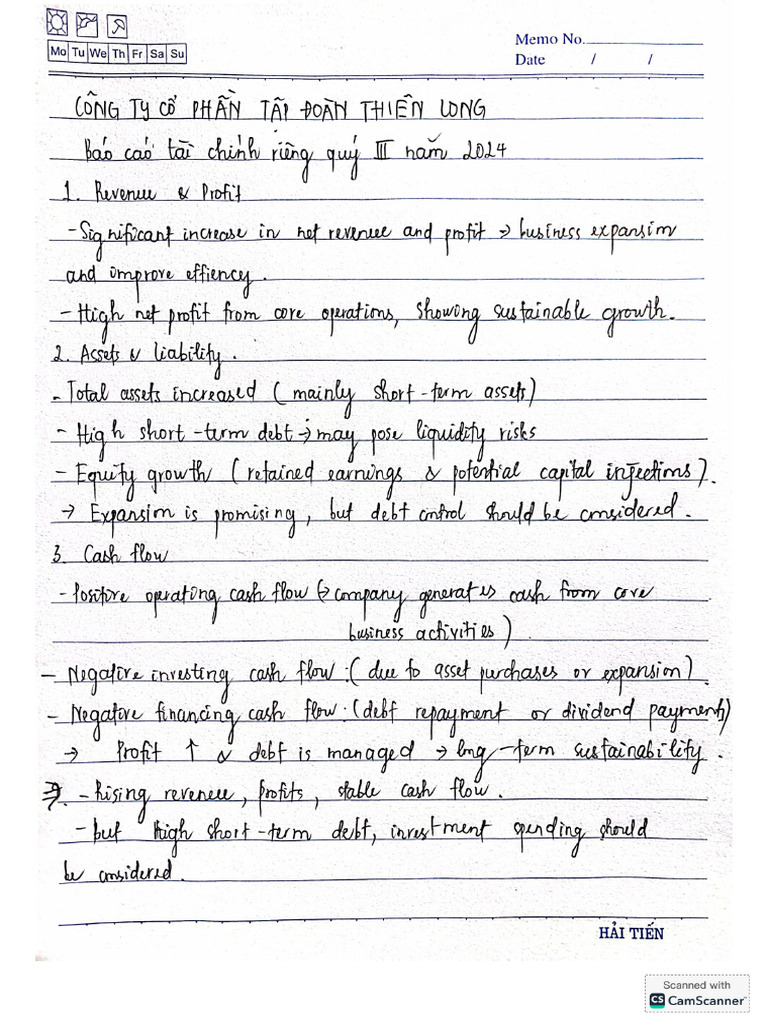 Mo Tu We Th Fr Sa Su
Memo No.
Date / /
CÔNG TY CỔ PHẦN TẬP ĐOÀN THIÊN LONG
Báo cáo tài chính riêng quý III năm 2024
1. Revenue & Profit
- Significant increase in net revenue and profit → business expansion
and improve effiency.
- High net profit from core operations, showing sustainable growth.
2. Assets & liability.
- Total assets increased (mainly short-term assets)
- High short-term debt → may pose liquidity risks
- Equity growth (retained earnings & potential capital injections).
→ Expansion is promising, but debt control should be considered.
3. Cash flow
- Positive operating cash flow (→ company generates cash from core
business activities)
- Negative investing cash flow: (due to asset purchases or expansion).
- Negative financing cash flow: (debt repayment or dividend payments)
→ Profit ↑ & debt is managed → long-term sustainability.
⇒. - Rising revenue, profits, stable cash flow.
- but high short-term debt, investment spending should
be considered.
HẢI TIẾN
Scanned with
CS CamScanner